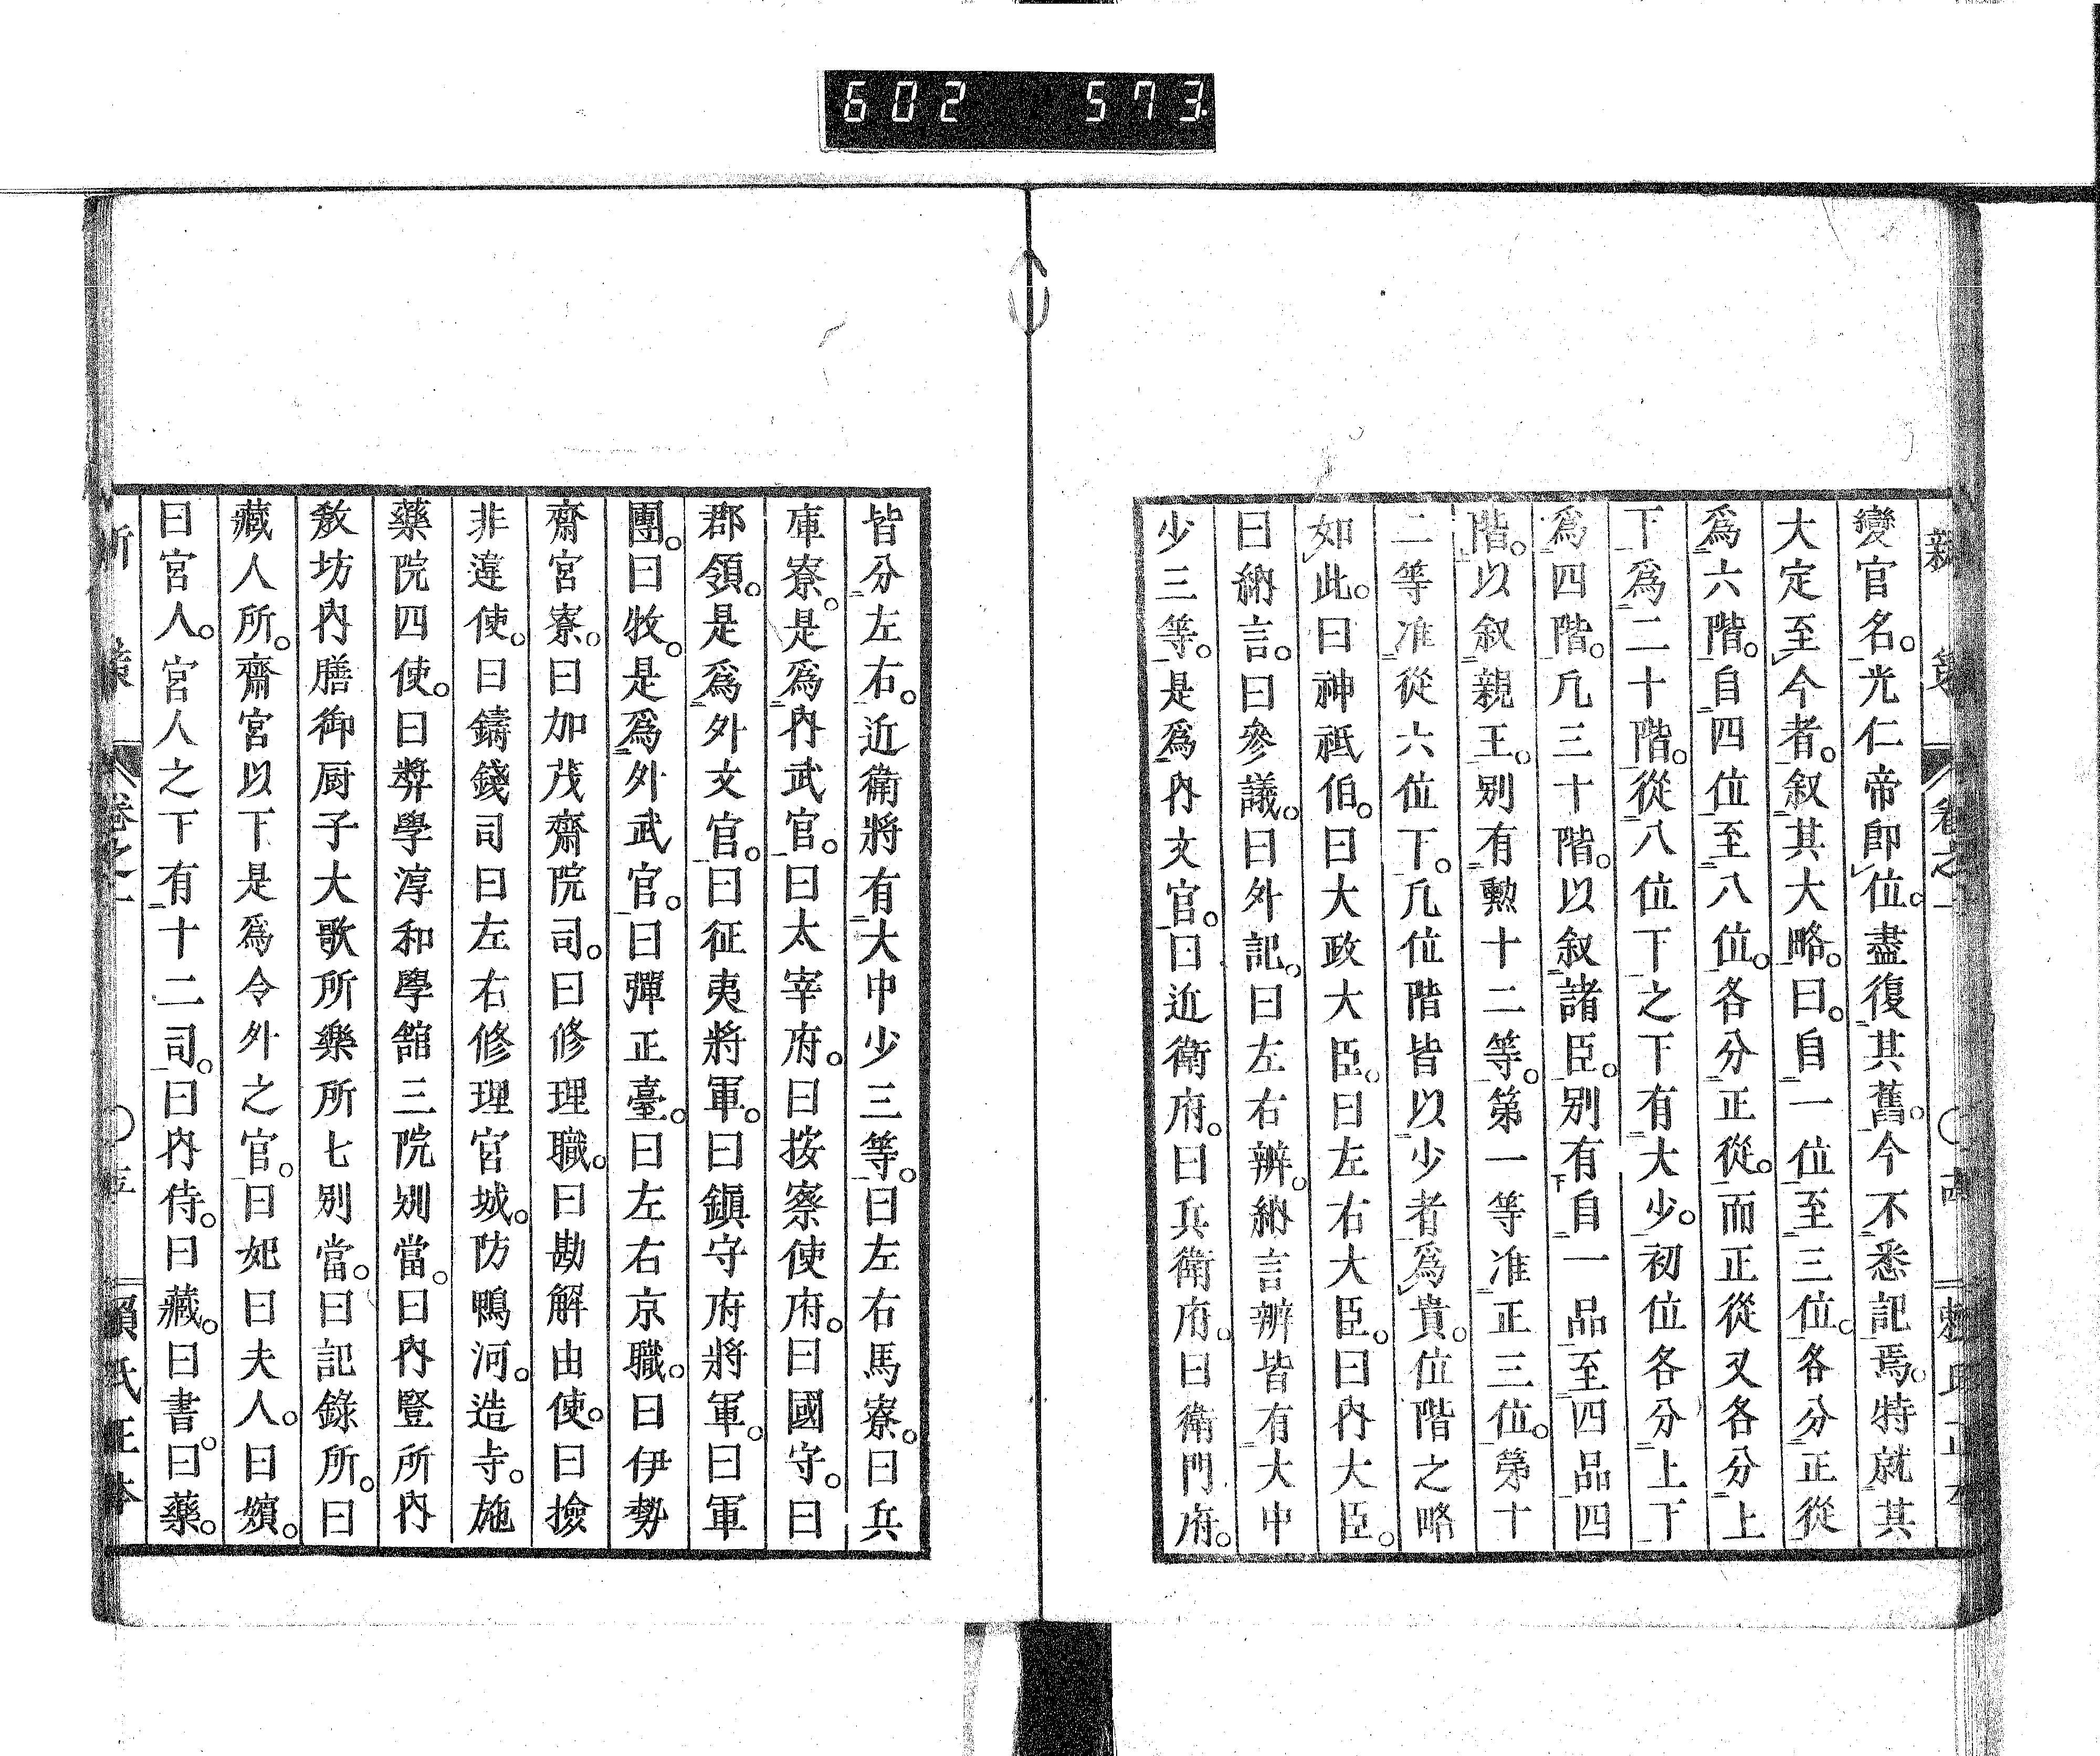 602 573
新策 卷之一 賴氏正本
變官名。光仁帝即位。盡復其舊。今不悉記焉。特就其
大定至今者。叙其大略。曰。自一位至三位。各分正從
爲六階。自四位至八位。各分正從。而正從又各分上
下爲二十階。從八位下之下有大少。初位各分上下
爲四階。凡三十階。以叙諸臣。別有自一品至四品四
階。以叙親王。別有勲十二等。第一等准正三位。第十
二等准從六位下。凡位階皆以少者爲貴。位階之略
如此。曰神祇伯。曰大政大臣。曰左右大臣。曰內大臣。
曰納言。曰參議。曰外記。曰左右辨。納言辨皆有大中
少三等。是爲內文官。曰近衛府。曰兵衛府。曰衛門府。
皆分左右。近衛將有大中少三等。曰左右馬寮。曰兵
庫寮。是爲內武官。曰太宰府。曰按察使府。曰國守。曰
郡領。是爲外文官。曰征夷將軍。曰鎭守府將軍。曰軍
團。曰牧。是爲外武官。曰彈正臺。曰左右京職。曰伊勢
齋宮寮。曰加茂齋院司。曰修理職。曰勘解由使。曰撿
非違使。曰鑄錢司曰左右修理官城。防鴨河。造寺。施
藥院四使。曰奬學淳和學館三院別當。曰內豎所內
敎坊內膳御厨子大歌所樂所七別當。曰記錄所。曰
藏人所。齋宮以下是爲令外之官。曰妃曰夫人。曰嬪。
曰宮人。宮人之下有十二司。曰內侍。曰藏。曰書。曰藥。
新策 卷之一 賴氏正本